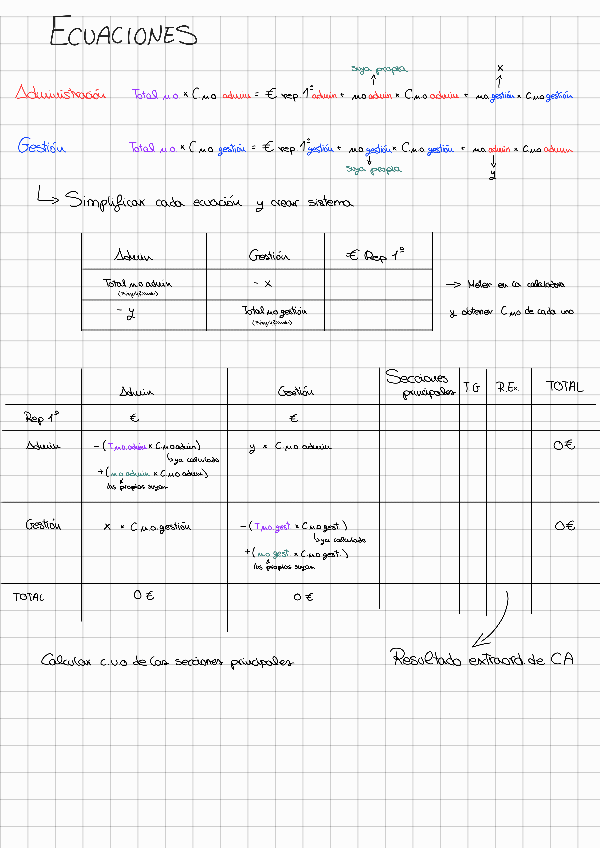 ECUACIONES
suya propia
x
Administración Total u.o. × C.u.o admin = € rep 1º admin + u.o admin × C.u.o admin + u.o gestión × C.u.o gestión
Gestión Total u.o. × C.u.o gestión = € rep 1º gestión + u.o gestión × C.u.o gestión + u.o. admin × C.u.o admin
suya propia
y
Simplificar cada ecuación y crear sistema
Admin Gestión € Rep 1º
Total u.o admin - x
(simplificado)
- y Total u.o gestión
(simplificado)
→ Meter en la calculadora
y obtener C.u.o de cada uno
Admin Gestión Secciones principales T G R.Ex. TOTAL
Rep 1º € €
Admin -(T.u.o. admin × C.u.o admin) y × C.u.o admin 0€
ya calculado
+(u.o admin × C.u.o admin)
las propias suyas
Gestión x × C.u.o. gestión -(T.u.o. gest. × C.u.o gest.) 0€
ya calculado
+(u.o gest. × C.u.o gest.)
las propias suyas
TOTAL 0 € 0 €
Calcular c.u.o de las secciones principales
Resultado extraord. de CA